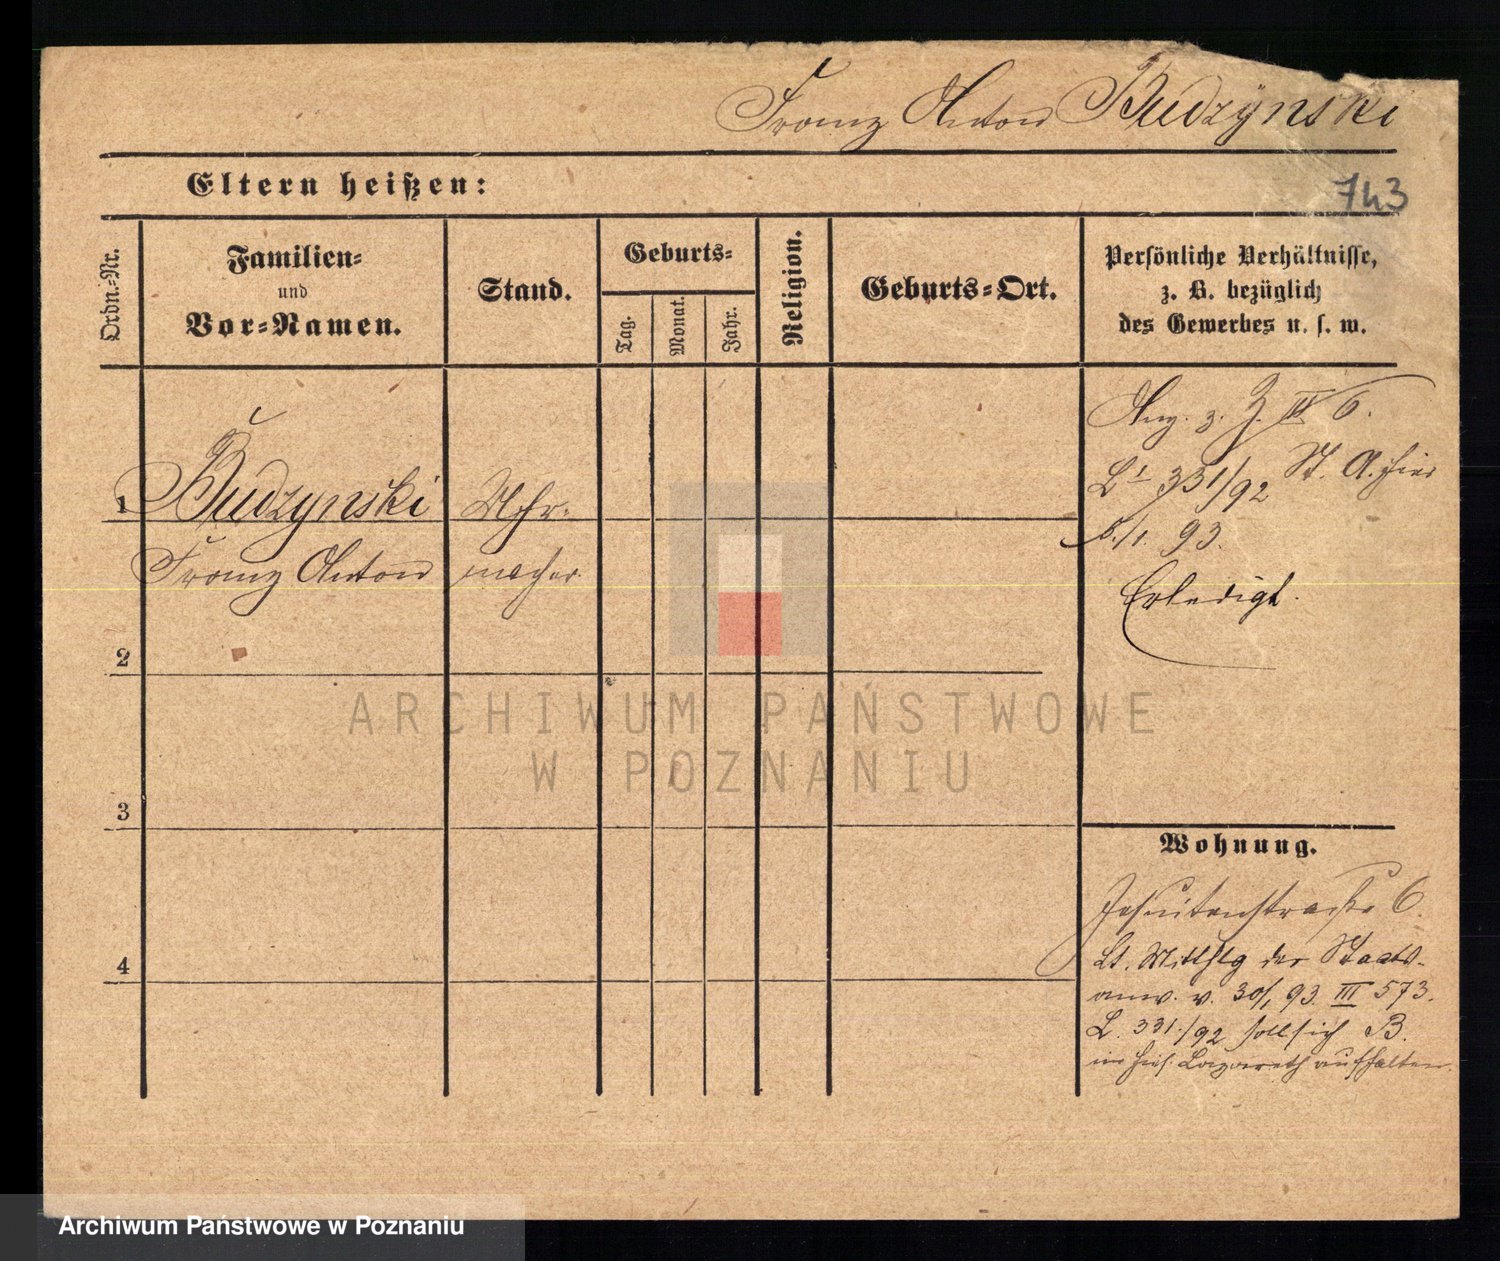 Franz Anton Budzynski
Eltern heißen:
743
Ordn.-Nr.
Familien-
und
Vor-Namen.
Stand.
Geburts-
Tag.
Monat.
Jahr.
Religion.
Geburts-Ort.
Persönliche Verhältnisse,
z. B. bezüglich
des Gewerbes u. s. w.
1
Budzynski
Franz Anton
Uhr-
macher
Ang. z. J. III 6.
L 331/92 St. A. hier
5./1. 93.
Erledigt.
2
3
4
Wohnung.
Jesuitenstraße 6.
Lt. Mitthlg der Staats-
anw. v. 30/1 93. III 573.
L. 331./92 soll sich B.
im hies. Lazareth aufhalten.
ARCHIWUM PAŃSTWOWE
W POZNANIU
Archiwum Państwowe w Poznaniu